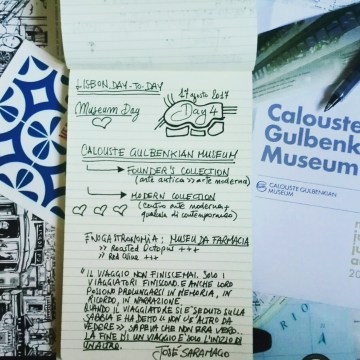 LISBON DAY-TO-DAY
17 agosto 2017
Museum Day
Day 4
CALOUSTE GULBENKIAN MUSEUM
FOUNDER'S COLLECTION
(arte antica >> arte moderna)
MODERN COLLECTION
(centro arte moderna +
qualcosa di contemporaneo)
ENOGASTRONOMIA: MUSEU DA FARMACIA
>> Roasted Octopus +++
>> Red Wine +++
"IL VIAGGIO NON FINISCE MAI. SOLO I
VIAGGIATORI FINISCONO. E ANCHE LORO
POSSONO PROLUNGARSI IN MEMORIA, IN
RICORDO, IN NARRAZIONE.
QUANDO IL VIAGGIATORE SI È SEDUTO SULLA
SABBIA E HA DETTO "NON C'È ALTRO DA
VEDERE", SAPEVA CHE NON ERA VERO.
LA FINE DI UN VIAGGIO È SOLO L'INIZIO DI
UN ALTRO.
JOSÉ SARAMAGO
Calouste
Gulbenkian
Museum
CALOUSTE GULBENKIAN
MUSEUM